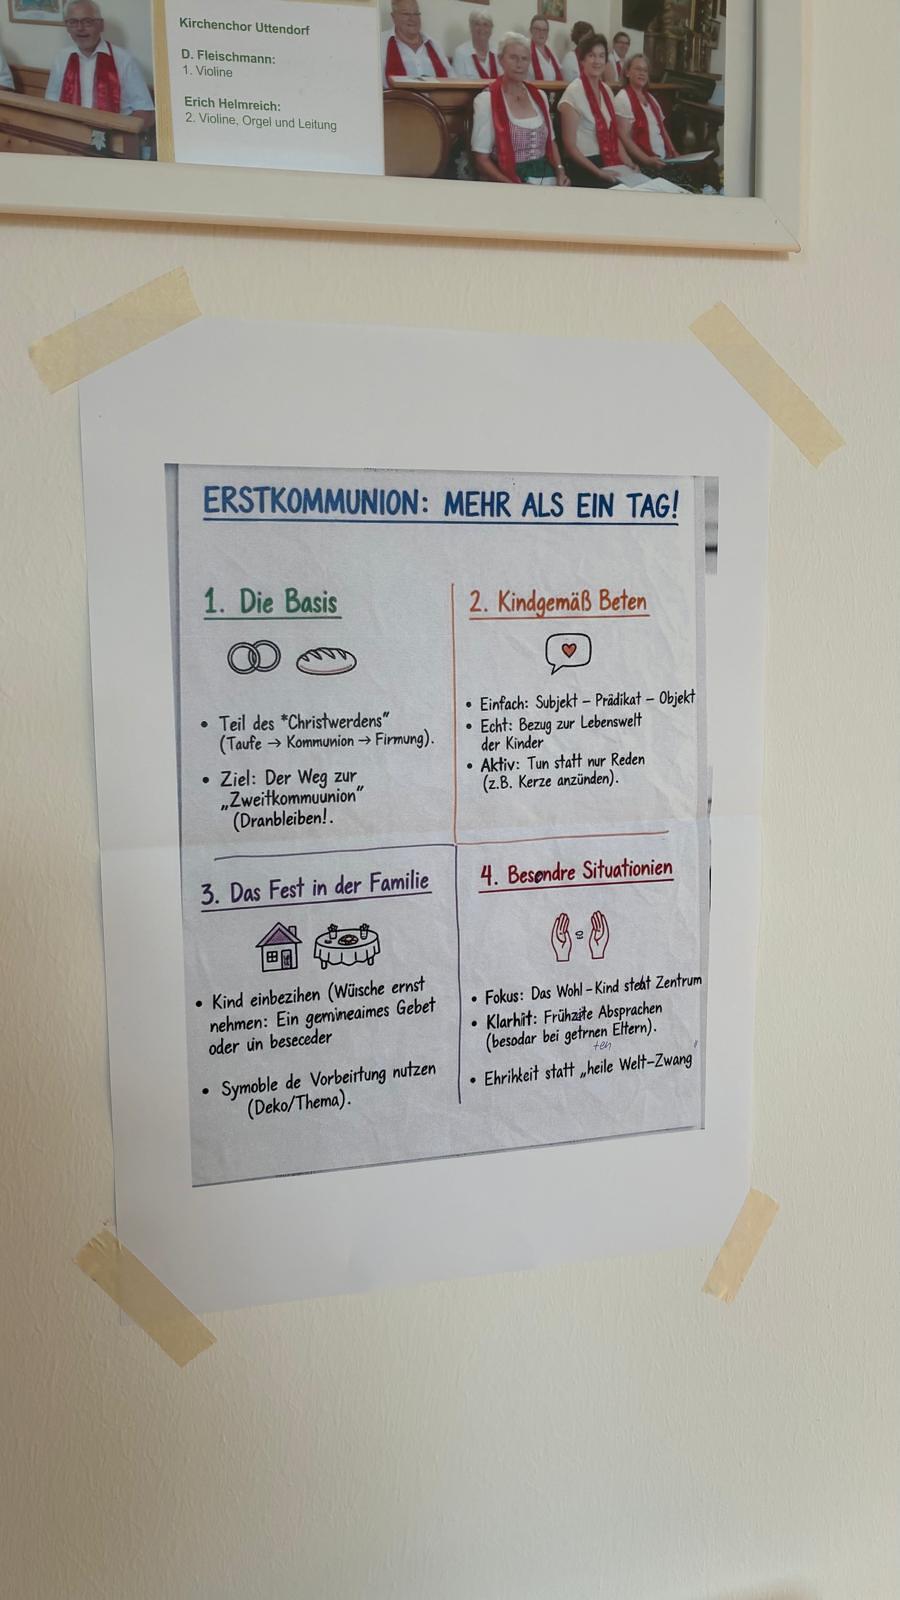 Kirchenchor Uttendorf
D. Fleischmann:
1. Violine
Erich Helmreich:
2. Violine, Orgel und Leitung
ERSTKOMMUNION: MEHR ALS EIN TAG!
1. Die Basis
• Teil des *Christwerdens"
(Taufe → Kommunion → Firmung).
• Ziel: Der Weg zur
„Zweitkommuunion"
(Dranbleiben!.
2. Kindgemäß Beten
• Einfach: Subjekt – Prädikat – Objekt
• Echt: Bezug zur Lebenswelt
der Kinder
• Aktiv: Tun statt nur Reden
(z.B. Kerze anzünden).
3. Das Fest in der Familie
• Kind einbezihen (Wüische ernst
nehmen: Ein gemineaimes Gebet
oder un beseceder
• Symoble de Vorbeirtung nutzen
(Deko/Thema).
4. Besondre Situationien
• Fokus: Das Wohl – Kind steht Zentrum
• Klarhit: Frühzeite Absprachen
(besodar bei getrnen Eltern).
ten
• Ehrihkeit statt „heile Welt-Zwang"